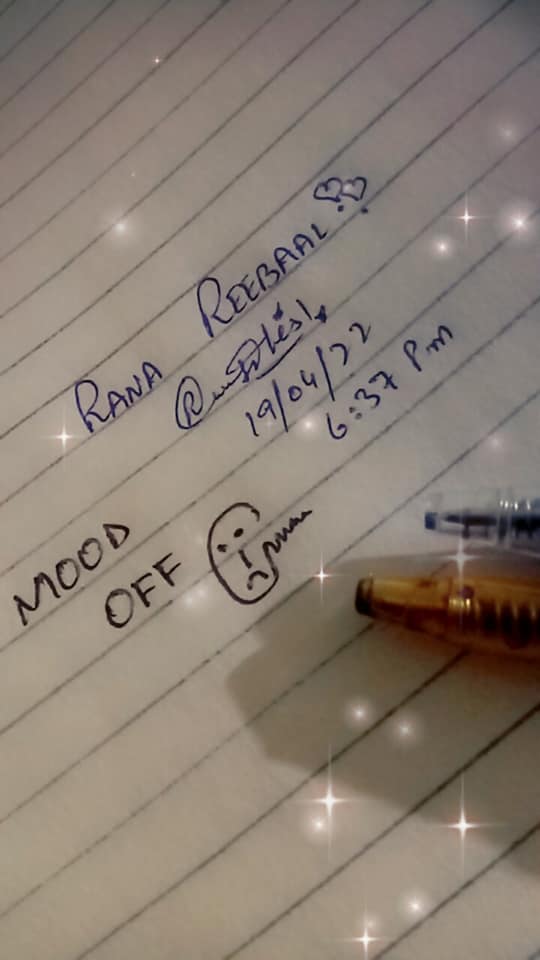 RANA REEBAAL
19/04/22
6:37 P.m
MOOD
OFF